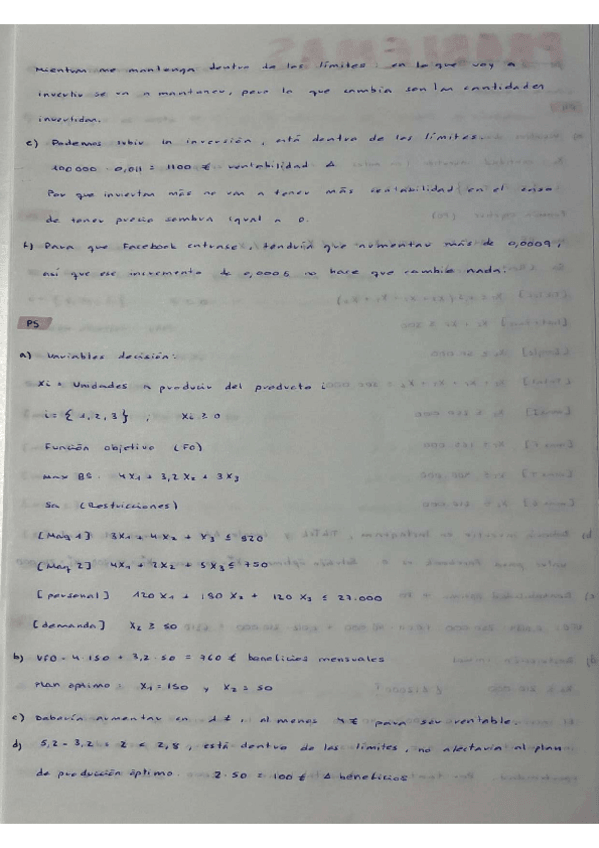 mientras me mantenga dentro de los límites: en lo que voy a
invertir se va a mantener, pero lo que cambia son las cantidades
invertidas.
e) Podemos subir la inversión, está dentro de los límites.
100000 · 0,011 = 1100 € rentabilidad Δ
Por que inviertan más no van a tener más rentabilidad en el caso
de tener precio sombra igual a 0.
f) Para que Facebook entrase, tendría que aumentar más de 0,0009,
así que ese incremento de 0,0005 no hace que cambie nada.
P5
a) Variables decisión:
Xi = Unidades a producir del producto i
i = { 1, 2, 3 } ; Xi ≥ 0
Función objetivo (FO)
Max BS. 4X1 + 3,2 X2 + 3X3
Sa (Restricciones)
[Maq 1] 3X1 + 4X2 + X3 ≤ 520
[Maq 2] 4X1 + 2X2 + 5X3 ≤ 750
[personal] 120 X1 + 180 X2 + 120 X3 ≤ 27.000
[demanda] X2 ≥ 50
b) VFO = 4·150 + 3,2·50 = 760 € beneficios mensuales
Plan óptimo: X1 = 150 y X2 = 50
c) Debería aumentar en 1 €, al menos 4 € para ser rentable.
d) 5,2 - 3,2 = 2 < 2,8, está dentro de los límites, no afectaría al plan
de producción óptimo. 2·50 = 100 € Δ beneficios